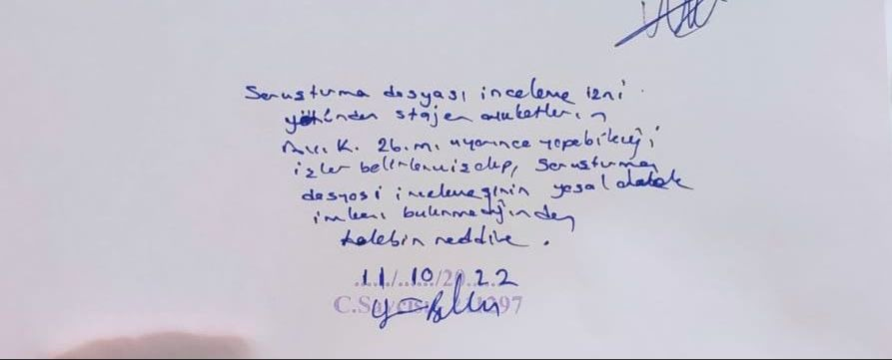 Soruşturma dosyası inceleme izni
yönünden stajer avukatların
Av. K. 26. m. uyarınca yapabileceği
işler belirlenmiş olup, soruşturma
dosyası incelemesinin yasal olarak
imkanı bulunmadığından
talebin reddine.
11/10/2022
C.Savcısı